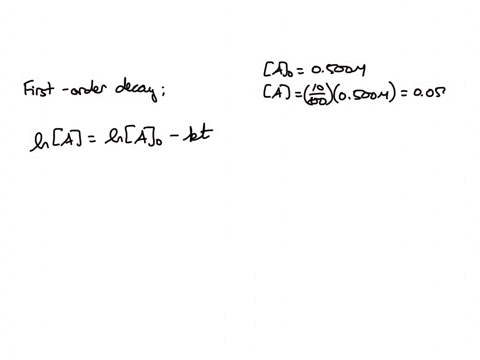 First-order decay:
ln[A] = ln[A]₀ - kt
[A]₀ = 0.500M
[A] = (10/100)(0.500M) = 0.05